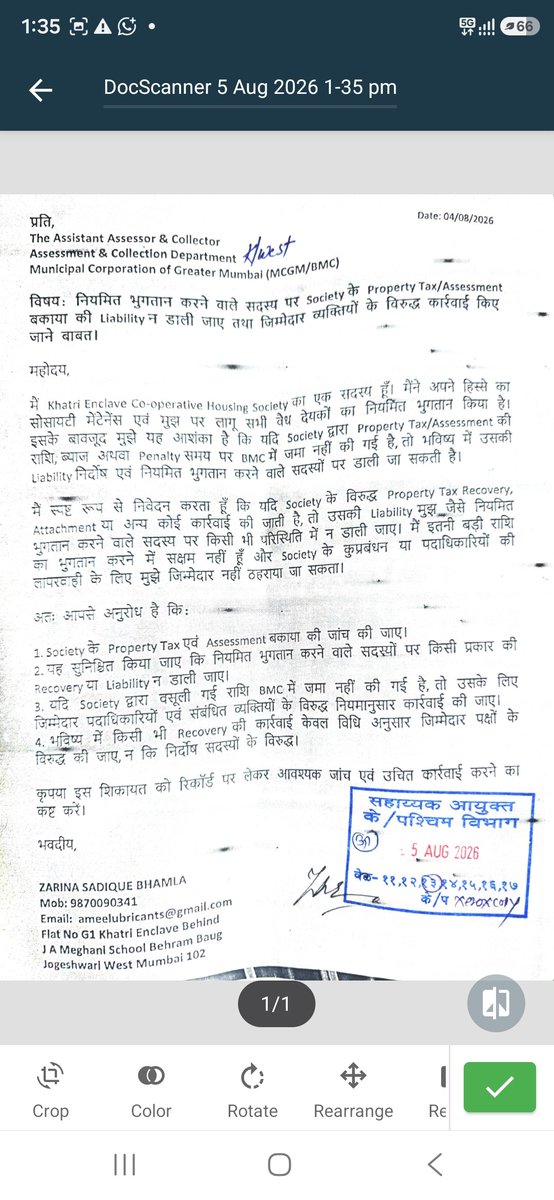 1:35
5G
66
DocScanner 5 Aug 2026 1-35 pm
Date: 04/08/2026
प्रति,
The Assistant Assessor & Collector
Assessment & Collection Department K/west
Municipal Corporation of Greater Mumbai (MCGM/BMC)
विषय: नियमित भुगतान करने वाले सदस्य पर Society के Property Tax/Assessment
बकाया की Liability न डाली जाए तथा जिम्मेदार व्यक्तियों के विरुद्ध कार्रवाई किए
जाने बाबत।
महोदय,
मैं Khatri Enclave Co-operative Housing Society का एक सदस्य हूँ। मैंने अपने हिस्से का
सोसायटी मेंटेनेंस एवं मुझ पर लागू सभी वैध देयकों का नियमित भुगतान किया है।
इसके बावजूद मुझे यह आशंका है कि यदि Society द्वारा Property Tax/Assessment की
राशि, ब्याज अथवा Penalty समय पर BMC में जमा नहीं की गई है, तो भविष्य में उसकी
Liability निर्दोष एवं नियमित भुगतान करने वाले सदस्यों पर डाली जा सकती है।
मैं स्पष्ट रूप से निवेदन करता हूँ कि यदि Society के विरुद्ध Property Tax Recovery,
Attachment या अन्य कोई कार्रवाई की जाती है, तो उसकी Liability मुझ जैसे नियमित
भुगतान करने वाले सदस्य पर किसी भी परिस्थिति में न डाली जाए। मैं इतनी बड़ी राशि
का भुगतान करने में सक्षम नहीं हूँ और Society के कुप्रबंधन या पदाधिकारियों की
लापरवाही के लिए मुझे जिम्मेदार नहीं ठहराया जा सकता।
अतः आपसे अनुरोध है कि:
1. Society के Property Tax एवं Assessment बकाया की जांच की जाए।
2. यह सुनिश्चित किया जाए कि नियमित भुगतान करने वाले सदस्यों पर किसी प्रकार की
Recovery या Liability न डाली जाए।
3. यदि Society द्वारा वसूली गई राशि BMC में जमा नहीं की गई है, तो उसके लिए
जिम्मेदार पदाधिकारियों एवं संबंधित व्यक्तियों के विरुद्ध नियमानुसार कार्रवाई की जाए।
4. भविष्य में किसी भी Recovery की कार्रवाई केवल विधि अनुसार जिम्मेदार पक्षों के
विरुद्ध की जाए, न कि निर्दोष सदस्यों के विरुद्ध।
कृपया इस शिकायत को रिकॉर्ड पर लेकर आवश्यक जांच एवं उचित कार्रवाई करने का
कष्ट करें।
भवदीय,
सहाय्यक आयुक्त
के/पश्चिम विभाग
5 AUG 2026
वेळ-११,१२,१३,१४,१५,१६,१७
के/प xeroxcopy
ZARINA SADIQUE BHAMLA
Mob: 9870090341
Email: ameelubricants@gmail.com
Flat No G1 Khatri Enclave Behind
J A Meghani School Behram Baug
Jogeshwari West Mumbai 102
1/1
Crop
Color
Rotate
Rearrange
Re